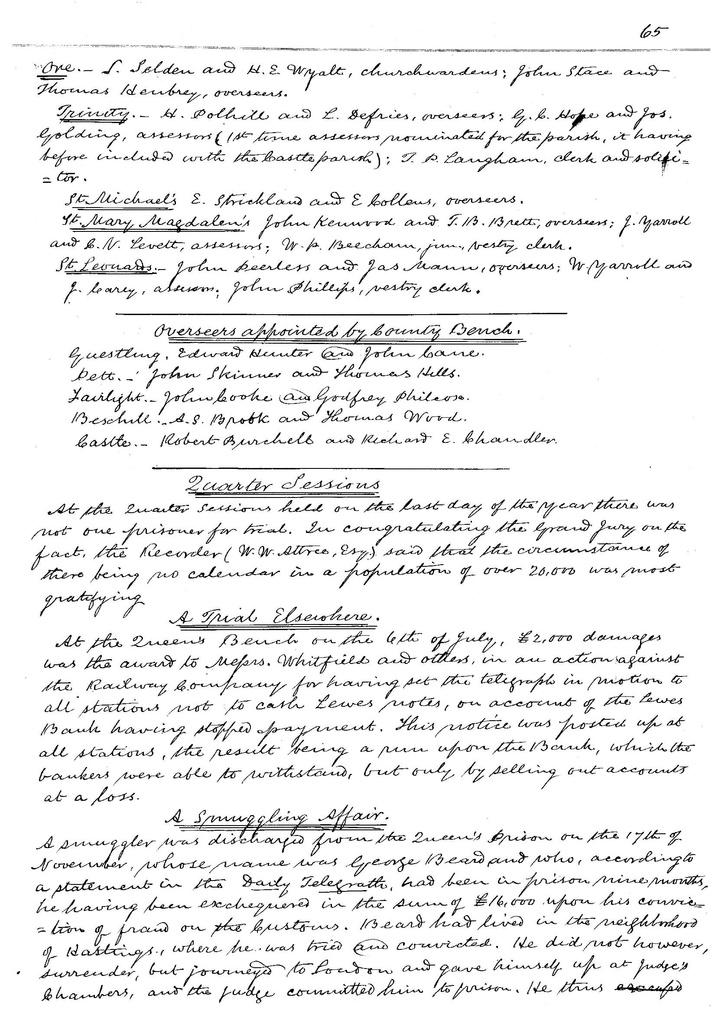 65
Ore.- S. Selden and H.E. Wyatt, churchwardens; John Stace and
Thomas Henbrey, overseers.
Trinity.- H. Polhill and L. Defries, overseers; G.C. Hope and Jos.
Golding, assessors (1st time assessors nominated for the parish, it having
before included with the Castle parish); T. P. Langham, clerk and solici=
=tor.
St Michael's E. Strickland and E Collens, overseers.
St Mary Magdalen's John Kenwood and T.B. Brett, overseers; J. Yarroll
and C.V. Levett, assessors; W.P. Beecham, jun., vestry clerk.
St Leonards.- John Peerless and Jas Mann, overseers; W. Yarroll and
J. Carey, assessors; John Phillips, vestry clerk.
Overseers appointed by County Bench.
Guestling, Edward Hunter and John Cane.
Pett.- John Skinner and Thomas Hells.
Fairlight.- John Cooke and Godfrey Philcox.
Bexhill.- A.S. Brook and Thomas Wood.
Castle.- Robert Burchell and Richard E. Chandler.
Quarter Sessions
At the Quarter Sessions held on the last day of the year there was
not one prisoner for trial. In congratulating the Grand Jury on the
fact, the Recorder (W.W. Attree, Esq) said that the circumstance of
there being no calendar in a population of over 20,000 was most
gratifying
A Trial Elsewhere.
At the Queen's Bench on the 6th of July, £2,000 damages
was the award to Messrs. Whitfield and others, in an action against
the Railway Company for having set the telegraph in motion to
all stations not to cash Lewes notes, on account of the Lewes
Bank having stopped payment. This notice was posted up at
all stations, the result being a run upon the Bank, which the
bankers were able to withstand, but only by selling out accounts
at a loss.
A Smuggling Affair.
A smuggler was discharged from the Queen's Prison on the 17th of
November, whose name was George Beard and who, according to
a statement in the Daily Telegrath, had been in prison nine months,
he having been exchequered in the sum of £16,000 upon his convic=
=tion of fraud on the Customs. Beard had lived in the neighborhood
of Hastings, where he was tried and convicted. He did not however,
surrender, but journeyed to London and gave himself up at Judge's
Chambers, and the judge committed him to prison. He thus escaped